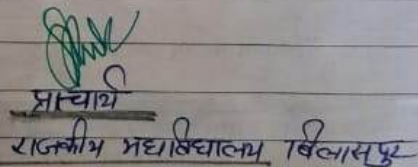 प्राचार्य
राजकीय महाविद्यालय बिलासपुर